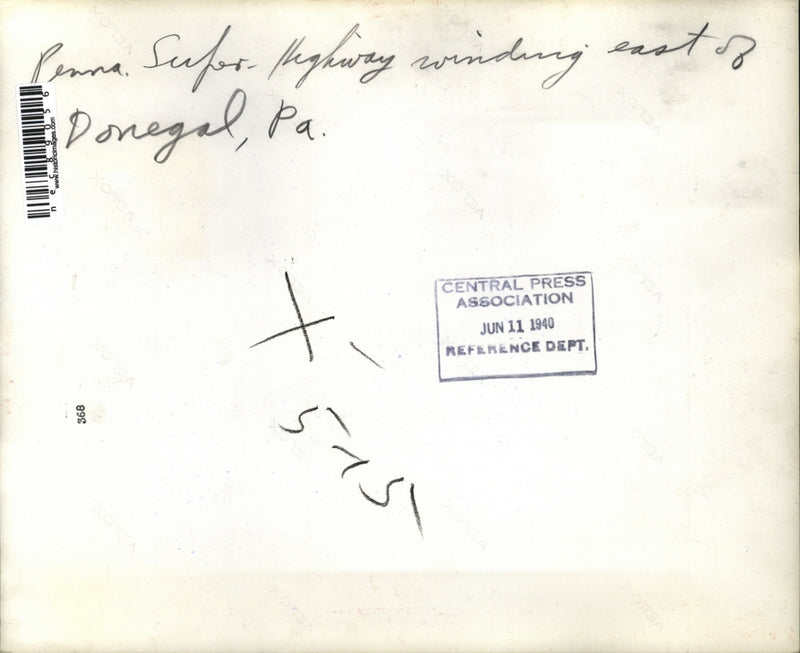 Penna. Super-Highway winding east of
Donegal, Pa.
nec89056
www.historicimages.com
CENTRAL PRESS
ASSOCIATION
JUN 11 1940
REFERENCE DEPT.
368
X-
575
VELOX